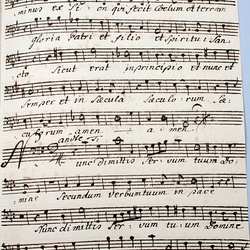 minus ex Sion qui fecit coelum et terram
gloria Patri et filio et Spiritui San
cto Sicut erat in principio et nunc et
Semper et in Sæcula Sæculorum Sæ
culorum amen amen
Nunc dimittis Servum tuum Do
mine Secundum verbum tuum in pace
Nunc dimittis Servum tuum Domine